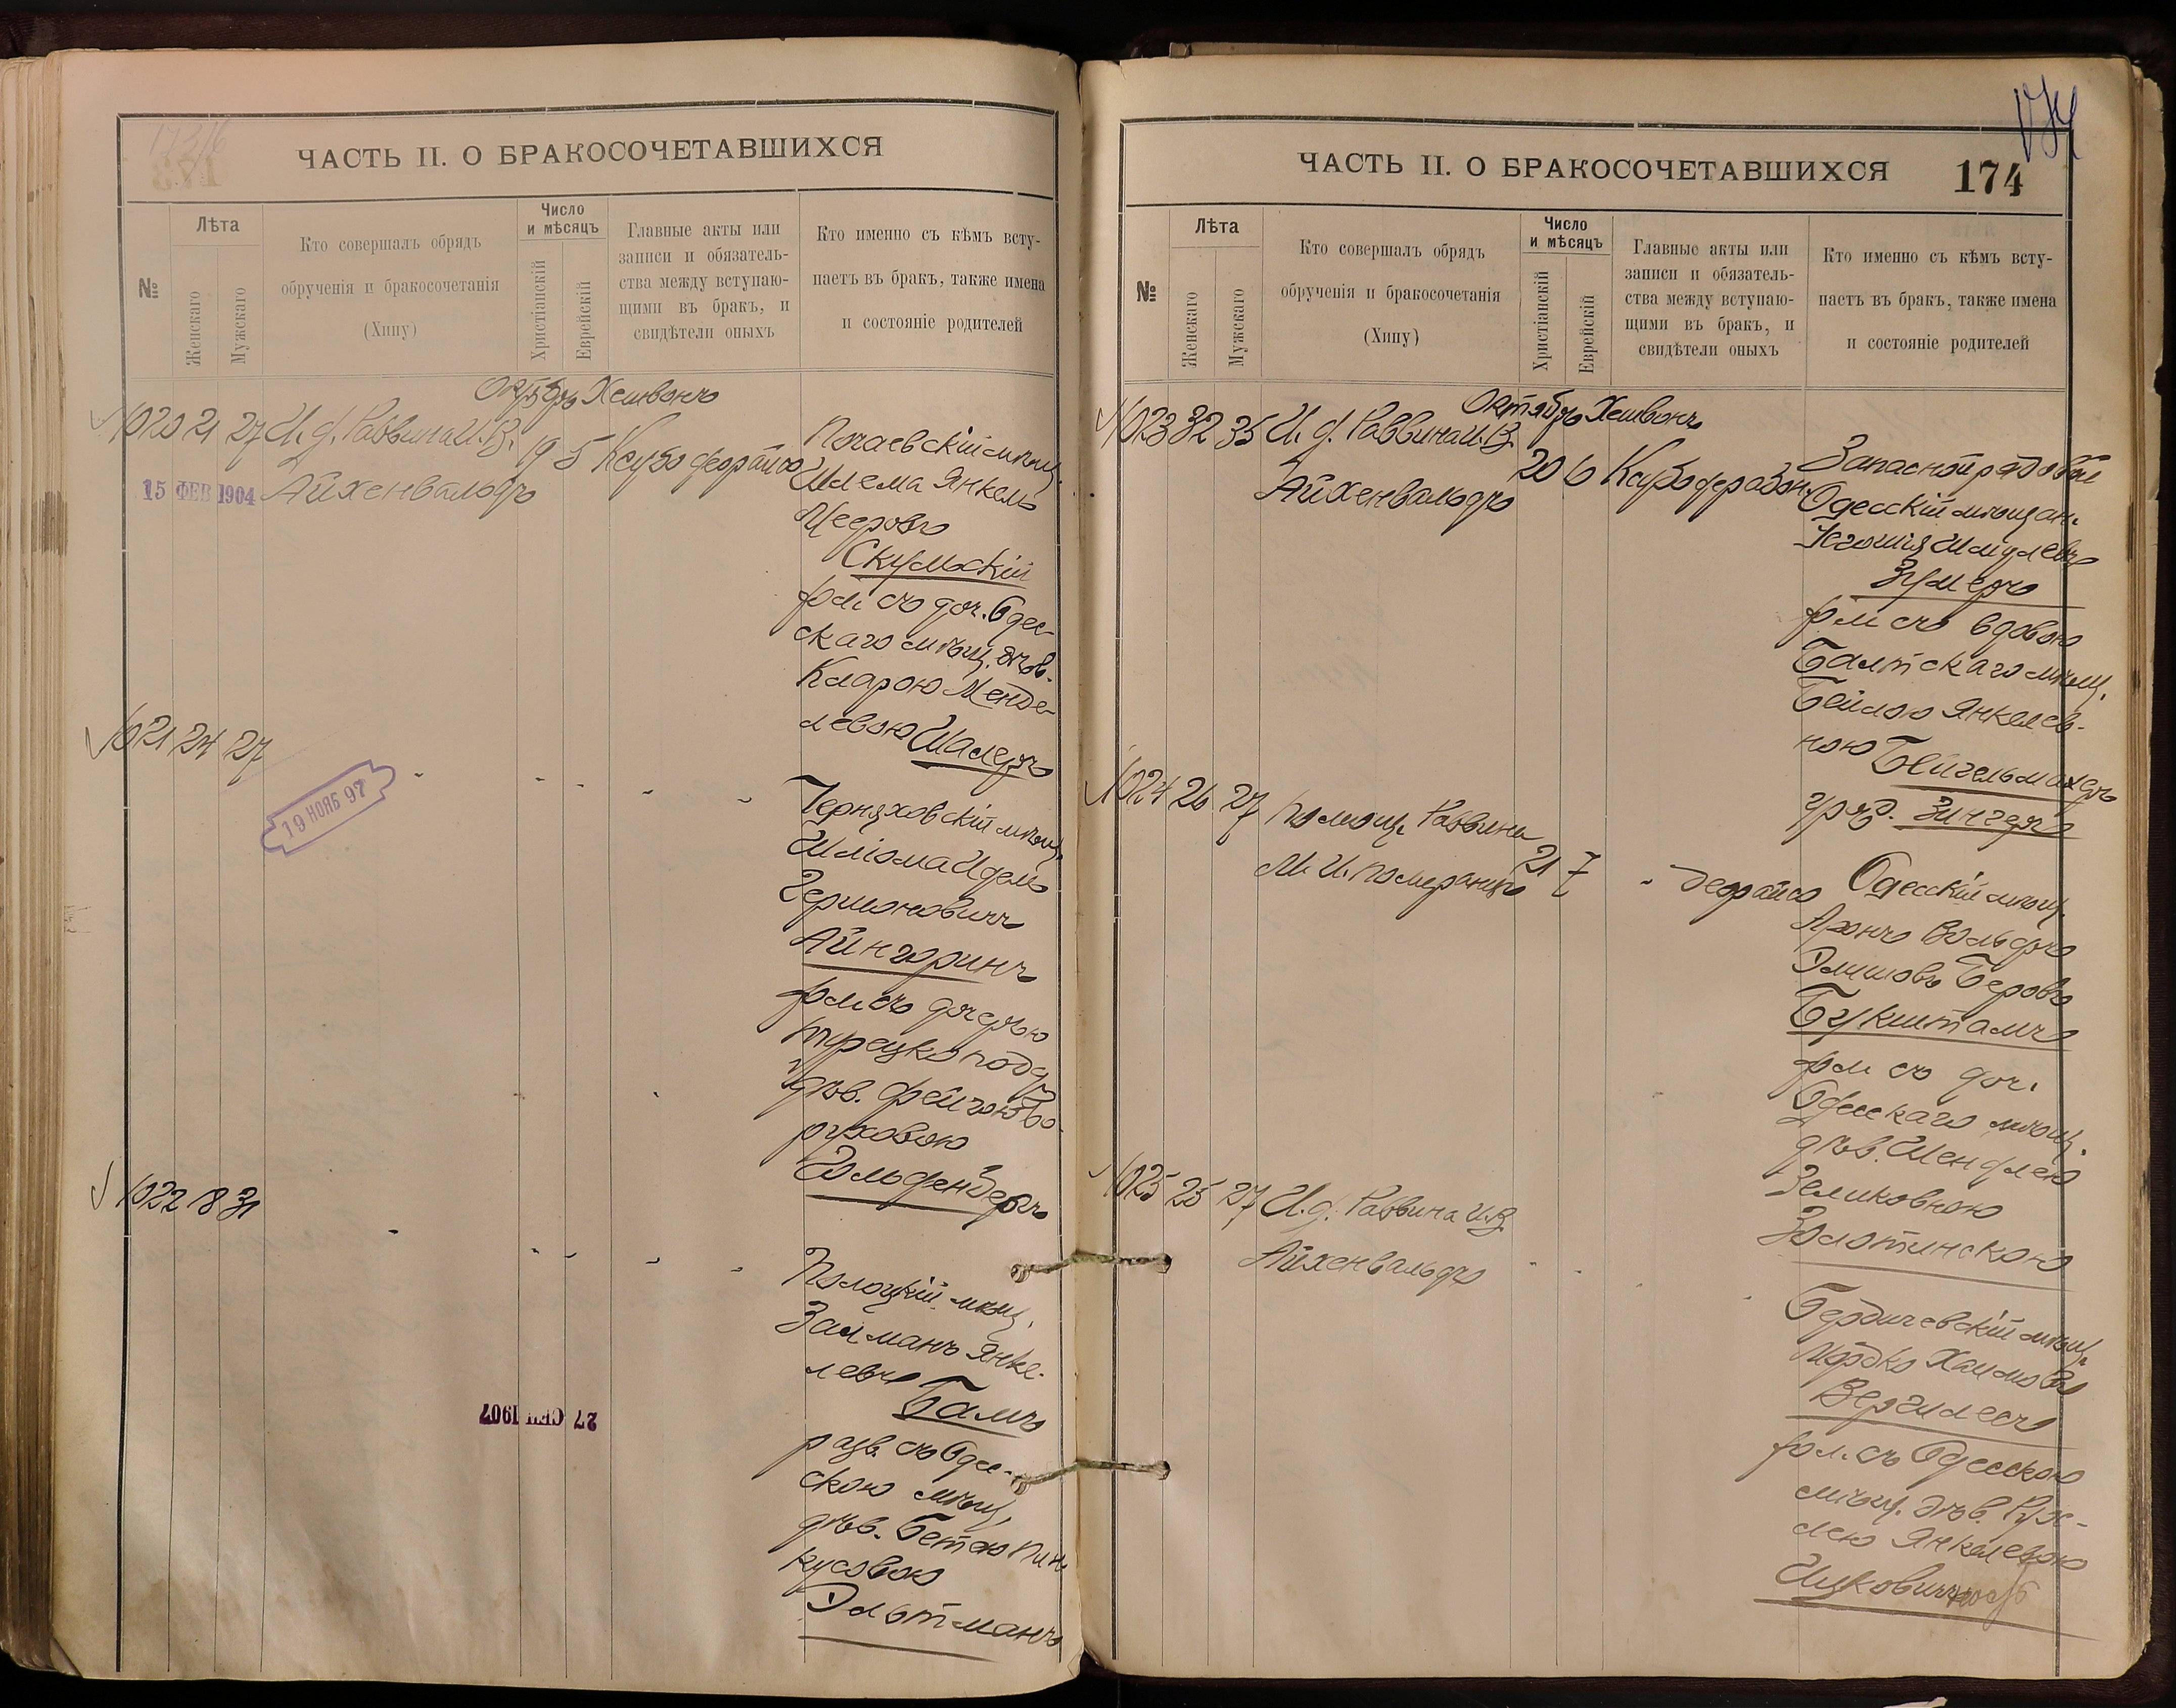 ЧАСТЬ II. О БРАКОСОЧЕТАВШИХСЯ
№
Лѣта
Женскаго
Мужскаго
Кто совершалъ обрядъ
обрученія и бракосочетанія
(Хипу)
Число
и мѣсяцъ
Христіанскій
Еврейскій
Главные акты или
записи и обязатель-
ства между вступаю-
щими въ бракъ, и
свидѣтели оныхъ
Кто именно съ кѣмъ всту-
паетъ въ бракъ, также имена
и состояніе родителей
Октябрь Хешвонъ
1020 21 27 И. д. Раввина И. В.
Айхенвальдъ
19 5 Ксубо деорайсо
15 ФЕВ 1904
Почаевскій мѣщ.
Шлема Янкель
Меерова
Скульскій
хол. съ доч. Одес-
скаго мѣщ. дѣв.
Кларою Менде-
левою Шалеръ
1021 24 27
19 НОЯБ 97
Черняховскій мѣщ.
Шліома Идель
Гершоновичъ
Айнгоринъ
хол. съ дочерью
турецкоподд.
дѣв. Фейгою Бо-
руховою
Гольденбергъ
1022 18 31
Полоцкій мѣщ.
Залманъ Янке-
левъ
Балъ
разв. съ Одес-
скою мѣщ.
дѣв. Бетею Пин-
кусовою
Ольтманъ
27 СЕН 1907
ЧАСТЬ II. О БРАКОСОЧЕТАВШИХСЯ
174
174
№
Лѣта
Женскаго
Мужскаго
Кто совершалъ обрядъ
обрученія и бракосочетанія
(Хипу)
Число
и мѣсяцъ
Христіанскій
Еврейскій
Главные акты или
записи и обязатель-
ства между вступаю-
щими въ бракъ, и
свидѣтели оныхъ
Кто именно съ кѣмъ всту-
паетъ въ бракъ, также имена
и состояніе родителей
Октябрь Хешвонъ
1023 32 35 И. д. Раввина И. В.
Айхенвальдъ
20 6 Ксубо дерабон.
Запасной рядовой
Одесскій мѣщан.
Шмулевъ
Зумеръ
хол. съ вдовою
Балтскаго мѣщ.
Бейлою Янкелев-
ною Бейгельмахеръ
урожд. Зингеръ
1024 26 27 Помощ. Раввина
М. И. Померанцъ
21 7
деорайсо
Одесскій мѣщ.
Аронъ Вольфъ
Беровъ
Букшталъ
хол. съ доч.
Одесскаго мѣщ.
дѣв. Шендлею
Зеликовною
Золотинскою
1025 25 27 И. д. Раввина И. В.
Айхенвальдъ
Бердичевскій мѣщ.
Мордко Хаимовъ
Вергилесъ
хол. съ Одесскою
мѣщ. дѣв. Рух-
лею Янкелевою